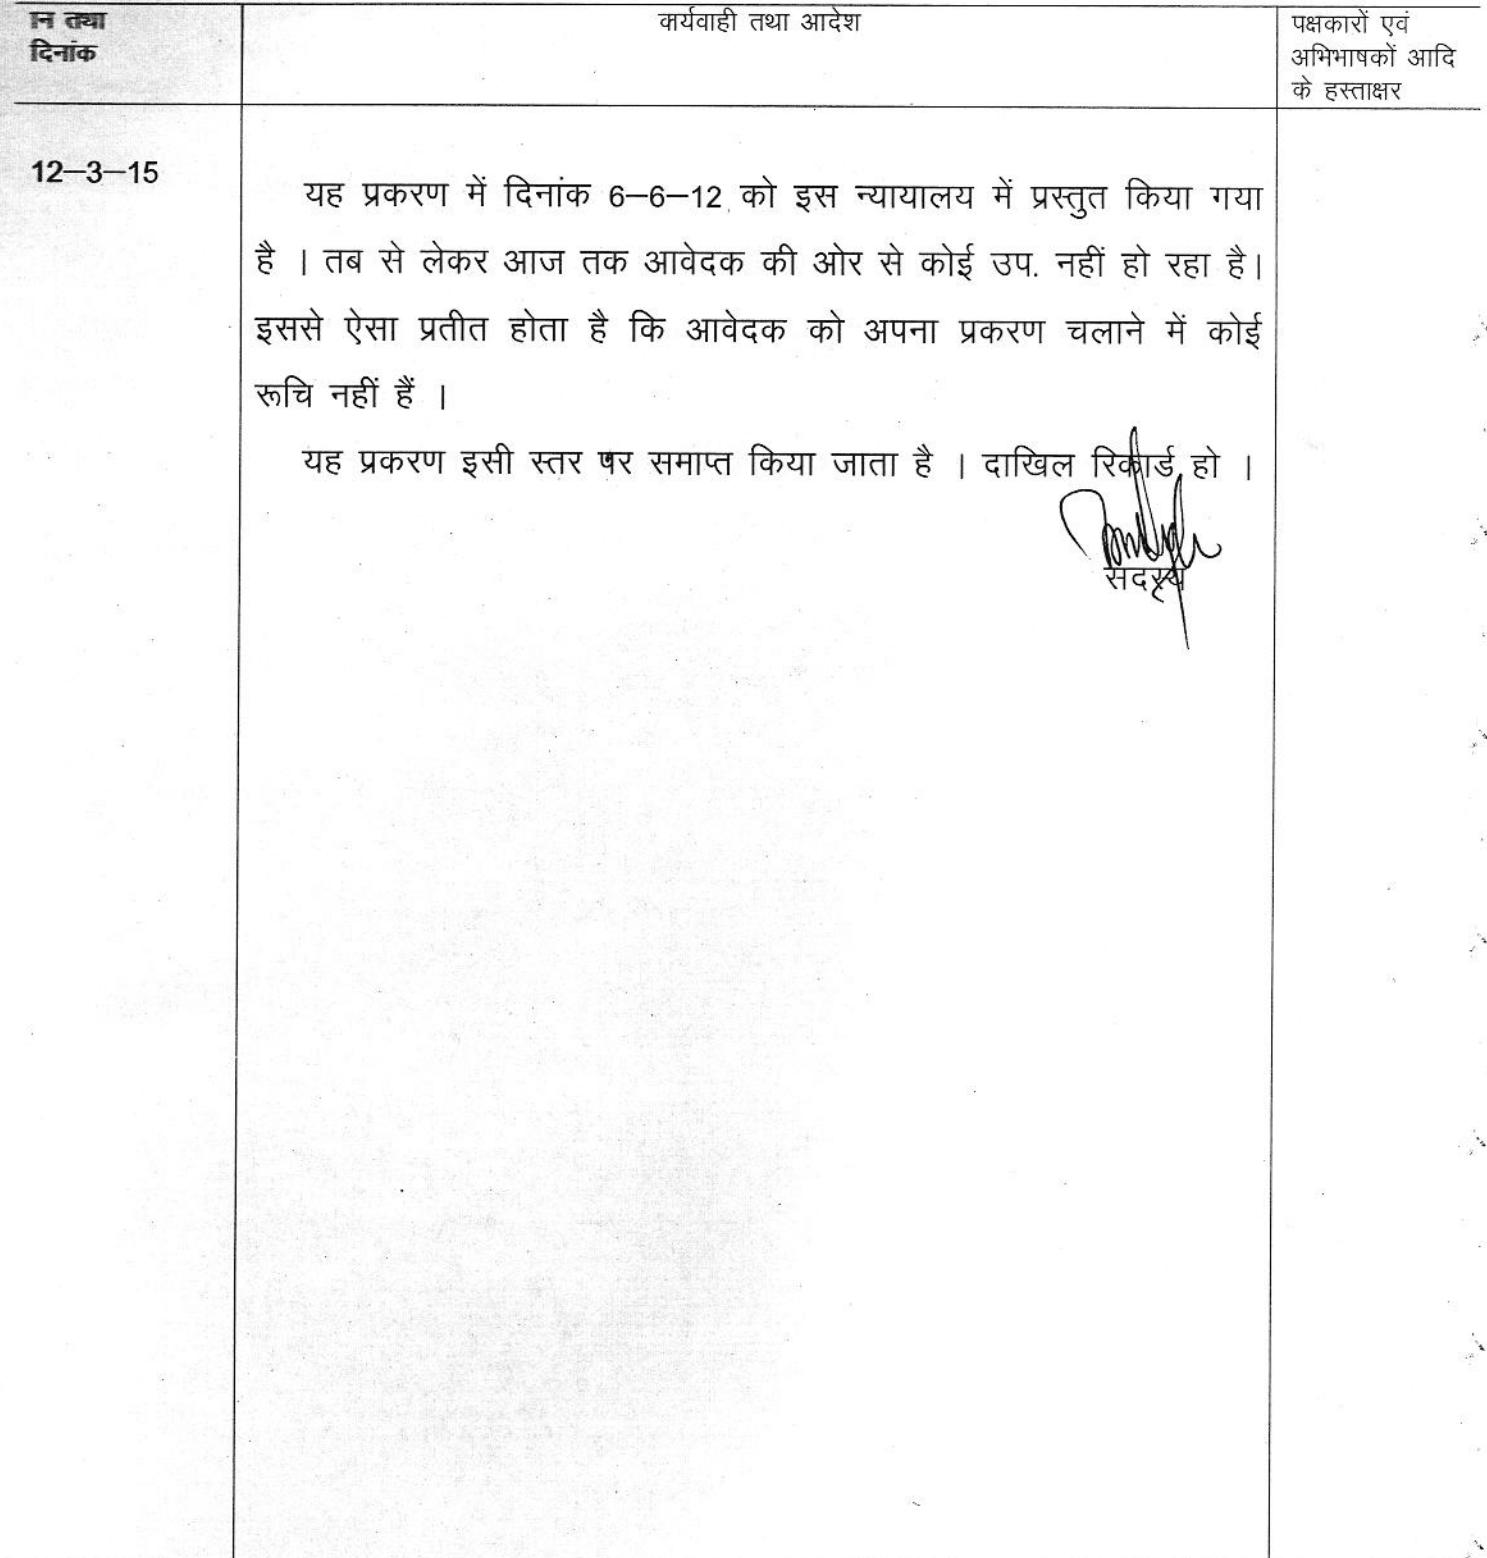 तथा
दिनांक
कार्यवाही तथा आदेश
पक्षकारों एवं
अभिभाषकों आदि
के हस्ताक्षर
12–3–15
यह प्रकरण में दिनांक 6–6–12 को इस न्यायालय में प्रस्तुत किया गया
है । तब से लेकर आज तक आवेदक की ओर से कोई उप. नहीं हो रहा है।
इससे ऐसा प्रतीत होता है कि आवेदक को अपना प्रकरण चलाने में कोई
रूचि नहीं हैं ।
यह प्रकरण इसी स्तर पर समाप्त किया जाता है । दाखिल रिकार्ड हो ।
सदस्य